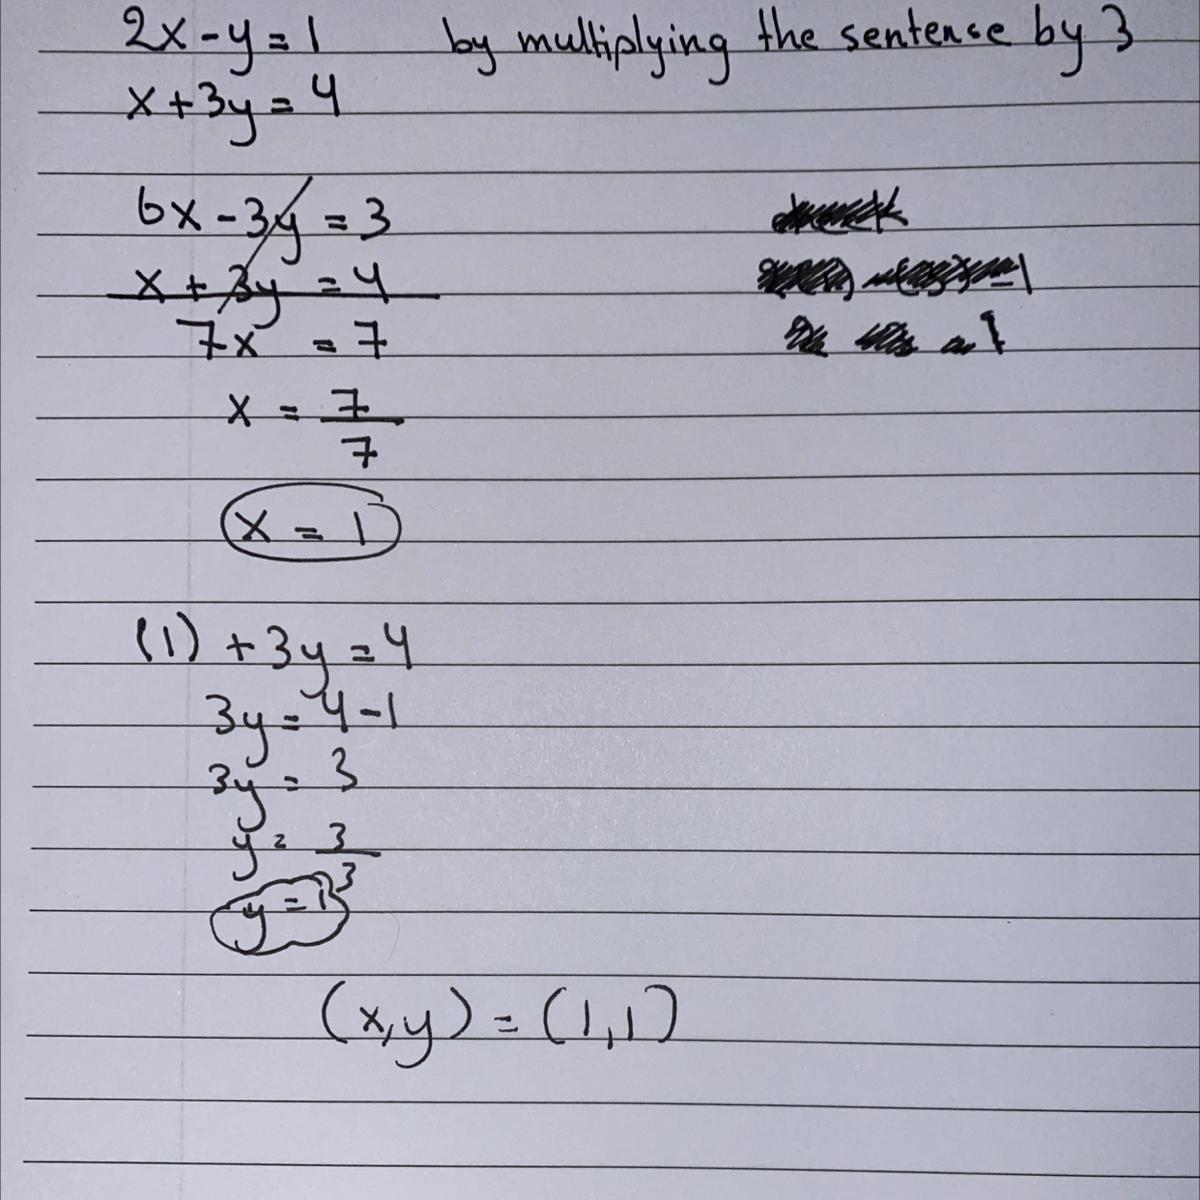 2x-y=1 by multiplying the sentence by 3
x+3y=4
6x-3y=3
x+3y=4
7x=7
x=7/7
x=1
(1)+3y=4
3y=4-1
3y=3
y=3/3
y=1
(x,y)=(1,1)